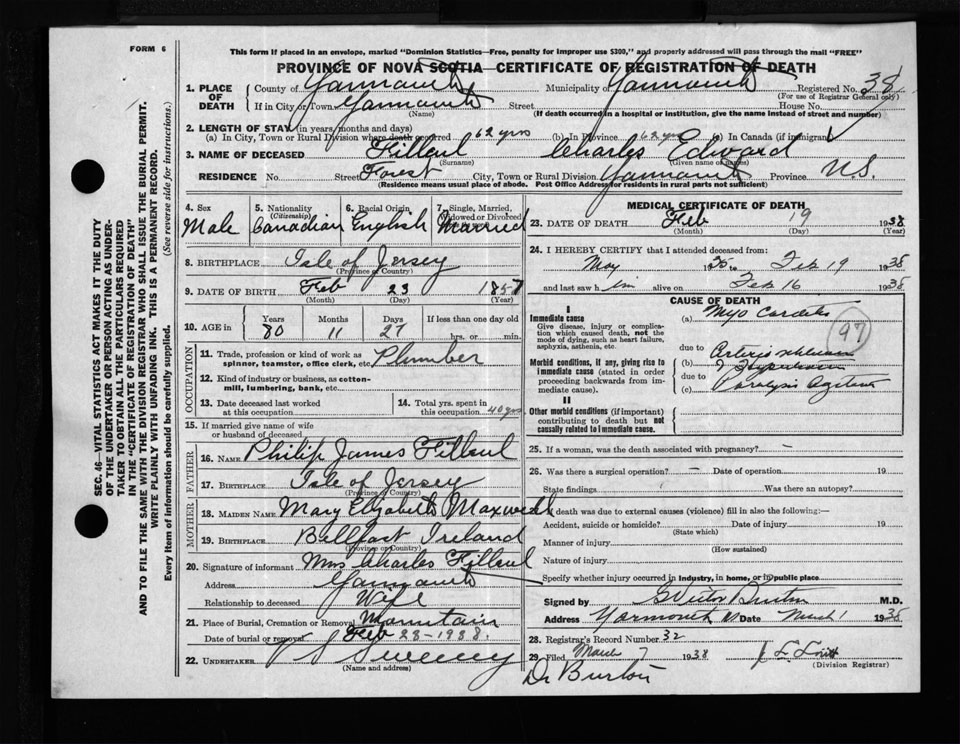 FORM 6
This form if placed in an envelope, marked "Dominion Statistics—Free, penalty for improper use $300," and properly addressed will pass through the mail "FREE"
PROVINCE OF NOVA SCOTIA—CERTIFICATE OF REGISTRATION OF DEATH
1. PLACE OF DEATH County of Yarmouth Municipality of Yarmouth Registered No. 38
(For use of Registrar General only)
If in City or Town Yarmouth Street House No.
(Name) (If death occurred in a hospital or institution, give the name instead of street and number)
2. LENGTH OF STAY (in years, months and days)
(a) In City, Town or Rural Division where death occurred 62 yrs (b) In Province 62 yrs (c) In Canada (if immigrant)
3. NAME OF DECEASED Filleul Charles Edward
(Surname) (Given name or names)
RESIDENCE No. Street Forest City, Town or Rural Division Yarmouth Province N.S.
(Residence means usual place of abode. Post Office Address for residents in rural parts not sufficient)
SEC. 46—VITAL STATISTICS ACT MAKES IT THE DUTY
OF THE UNDERTAKER OR PERSON ACTING AS UNDER-
TAKER TO OBTAIN ALL THE PARTICULARS REQUIRED
IN THE "CERTIFICATE OF REGISTRATION OF DEATH"
AND TO FILE THE SAME WITH THE DIVISION REGISTRAR WHO SHALL ISSUE THE BURIAL PERMIT.
WRITE PLAINLY WITH UNFADING INK. THIS IS A PERMANENT RECORD.
Every item of information should be carefully supplied. (See reverse side for instructions.)
4. Sex 5. Nationality (Citizenship) 6. Racial Origin 7. Single, Married, Widowed or Divorced
Male Canadian English Married
8. BIRTHPLACE Isle of Jersey
(Province or Country)
9. DATE OF BIRTH Feb 23 1857
(Month) (Day) (Year)
10. AGE in Years Months Days If less than one day old
80 11 27 hrs. or min.
OCCUPATION
11. Trade, profession or kind of work as spinner, teamster, office clerk, etc. Plumber
12. Kind of industry or business, as cotton-mill, lumbering, bank, etc.
13. Date deceased last worked at this occupation 14. Total yrs. spent in this occupation 40 yrs
15. If married give name of wife or husband of deceased
FATHER
16. NAME Philip James Filleul
17. BIRTHPLACE Isle of Jersey
(Province or Country)
MOTHER
18. MAIDEN NAME Mary Elizabeth Maxwell
19. BIRTHPLACE Bellfast Ireland
(Province or Country)
20. Signature of informant Mrs Charles Filleul
Address Yarmouth
Relationship to deceased Wife
21. Place of Burial, Cremation or Removal Mountain
Date of burial or removal Feb 23-1938.
22. UNDERTAKER Sweeny
(Name and address)
MEDICAL CERTIFICATE OF DEATH
23. DATE OF DEATH Feb 19 1938
(Month) (Day) (Year)
24. I HEREBY CERTIFY that I attended deceased from:
May 35 to Feb 19 1938
and last saw him alive on Feb 16 1938
CAUSE OF DEATH
I
Immediate cause (a) Myo Carditis
Give disease, injury or complication which caused death, not the mode of dying, such as heart failure, asphyxia, asthenia, etc.
97
due to
Morbid conditions, if any, giving rise to immediate cause (stated in order proceeding backwards from immediate cause). (b)
due to
(c) Paralysis Agitans
II
Other morbid conditions (if important) contributing to death but not causally related to immediate cause.
25. If a woman, was the death associated with pregnancy? –
26. Was there a surgical operation? – Date of operation 19
State findings Was there an autopsy?
27. If death was due to external causes (violence) fill in also the following:—
Accident, suicide or homicide? Date of injury 19
(State which)
Manner of injury
(How sustained)
Nature of injury
Specify whether injury occurred in industry, in home, or in public place
Signed by G Victor Burton M.D.
Address Yarmouth NS Date March 1 1938
28. Registrar's Record Number 32
29. Filed March 7 1938
(Division Registrar)
Dr Burton